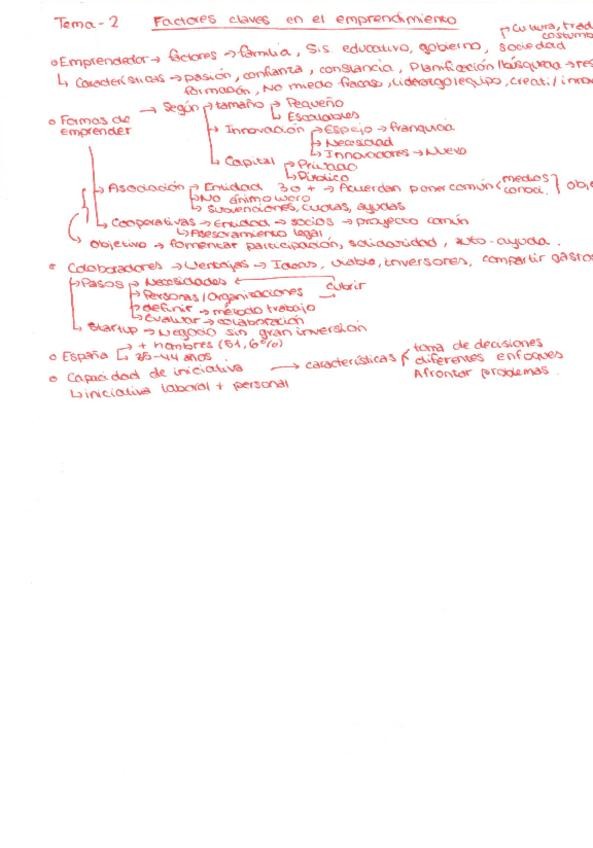 Tema-2 Factores claves en el emprendimiento
→ Cultura, trad
costumb
o Emprendedor → factores → familia, Sis educativo, gobierno, sociedad
↳ Características → pasión, confianza, constancia, Planificación/búsqueda → res
formación, No miedo fracaso, liderazgo/equipo, creati/innov
o Formas de emprender → Según → tamaño → Pequeño
↳ Escalables
↳ Innovación → Espejo → franquicia
→ Necesidad
↳ Innovadores → Nuevo
↳ Capital → Privado
↳ Público
→ Asociación → Entidad 3 o + → Acuerdan poner común (medios conoci. } obje
→ No ánimo lucro
↳ Subvenciones, cuotas, ayudas
↳ Cooperativas → Entidad → socios → proyecto común
↳ Asesoramiento legal
Objetivo → fomentar participación, solidaridad, auto-ayuda.
• Colaboradores → Ventajas → Ideas, viable, inversores, compartir gastos
→ Pasos → Necesidades ← cubrir
→ Personas/Organizaciones
→ definir → método trabajo
↳ Evaluar → colaboración
↳ Startup → Negocio sin gran inversión
o España → + hombres (51,6%)
↳ 35-44 años
o Capacidad de iniciativa → características { toma de decisiones
diferentes enfoques
Afrontar problemas.
↳ iniciativa laboral + personal